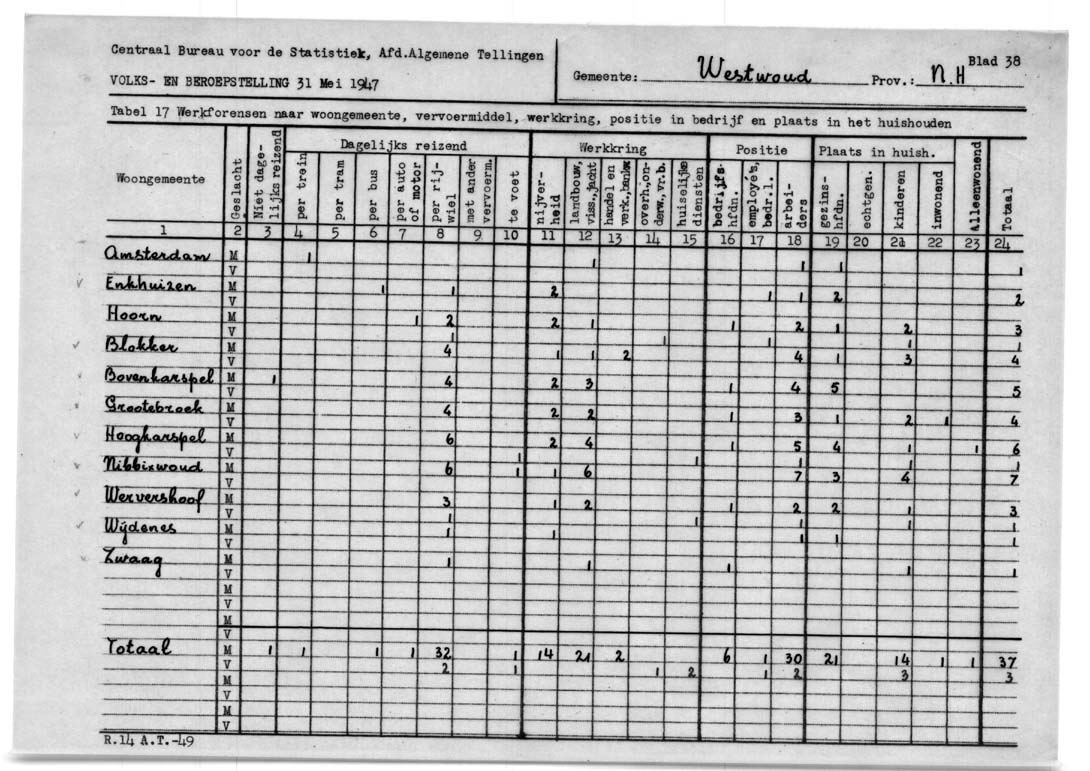 Centraal Bureau voor de Statistiek, Afd.Algemene Tellingen
VOLKS- EN BEROEPSTELLING 31 Mei 1947
Gemeente: Westwoud Prov.: N.H
Blad 38
Tabel 17 Werkforensen naar woongemeente, vervoermiddel, werkkring, positie in bedrijf en plaats in het huishouden
Woongemeente
Geslacht
Niet dage-
lijks reizend
Dagelijks reizend
per trein
per tram
per bus
per auto
of motor
per rij-
wiel
met ander
vervoerm.
te voet
Werkkring
nijver-
heid
landbouw,
viss.,jacht
handel en
verk.,bankw
overh.,on-
derw.,vr.b.
huiselijke
diensten
Positie
bedrijfs-
hfdn.
employé's,
bedr.l.
arbei-
ders
Plaats in huish.
gezins-
hfdn.
echtgen.
kinderen
inwonend
Alleenwonend
Totaal
1 2 3 4 5 6 7 8 9 10 11 12 13 14 15 16 17 18 19 20 21 22 23 24
Amsterdam M 1 1 1 1 1
V
Enkhuizen M 1 1 2 1 1 2 2
V
Hoorn M 1 2 2 1 1 2 1 2 3
V 1 1 1 1 1
Blokker M 4 1 1 2 4 1 3 4
V
Bovenkarspel M 1 4 2 3 1 4 5 5
V
Grootebroek M 4 2 2 1 3 1 2 1 4
V
Hoogkarspel M 6 2 4 1 5 4 1 1 6
V 1 1 1 1 1
Nibbixwoud M 6 1 1 6 7 3 4 7
V
Wervershoof M 3 1 2 1 2 2 1 3
V 1 1 1 1 1
Wijdenes M 1 1 1 1 1
V
Zwaag M 1 1 1 1 1
V
M
V
M
V
Totaal M 1 1 1 1 32 1 14 21 2 6 1 30 21 14 1 1 37
V 2 1 1 2 1 2 3 3
M
V
M
V
R.14 A.T.-49